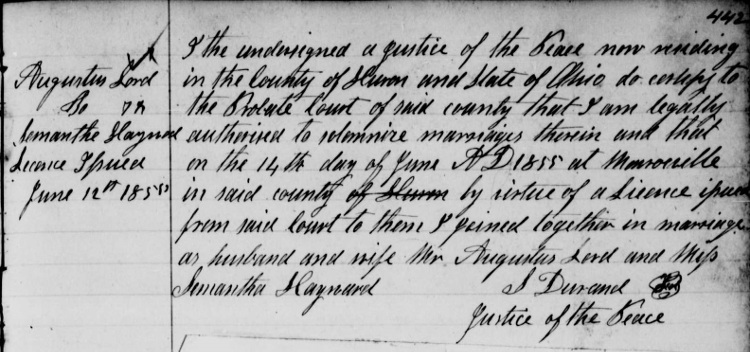 442
Augustus Lord
To
Semanthe Hayward
Licence Issued
June 12th 1855
I the undersigned a Justice of the Peace now residing
in the County of Huron and State of Ohio do certify to
the Probate Court of said county that I am legally
authorised to solemnize marriages therein and that
on the 14th day of June AD 1855 at Monroeville
in said county of Huron by virtue of a Licence issued
from said Court to them I joined together in marriage
as husband and wife Mr Augustus Lord and Miss
Semantha Hayward
S Durand
Justice of the Peace